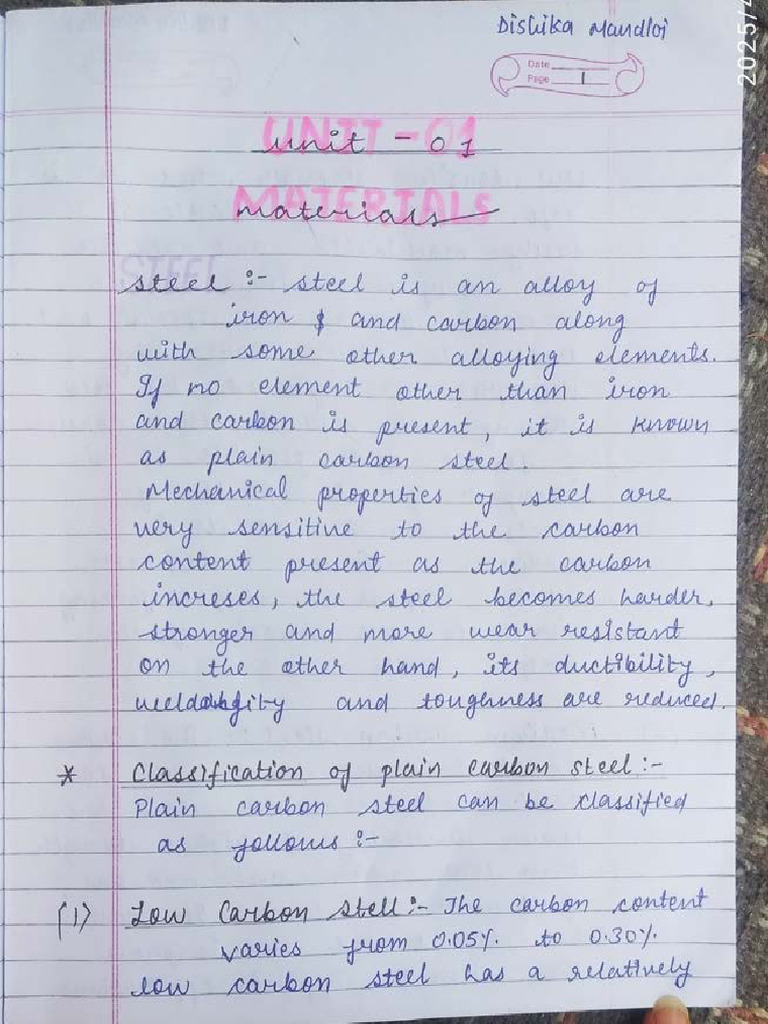 Dishika Mandloi
2025/4
Date
Page 1
UNIT - 01
unit - 01
MATERIALS
materials
STEEL
steel :- steel is an alloy of
iron & and carbon along
with some other alloying elements.
If no element other than iron
and carbon is present, it is known
as plain carbon steel.
Mechanical properties of steel are
very sensitive to the carbon
content present as the carbon
increses, the steel becomes harder,
stronger and more wear resistant
on the other hand, its ductibility,
and toughness are reduced.
* Classification of plain carbon steel :-
Plain carbon steel can be classified
as follows :-
(1) Low Carbon stell :- The carbon content
varies from 0.05%. to 0.30%.
low carbon steel has a relatively